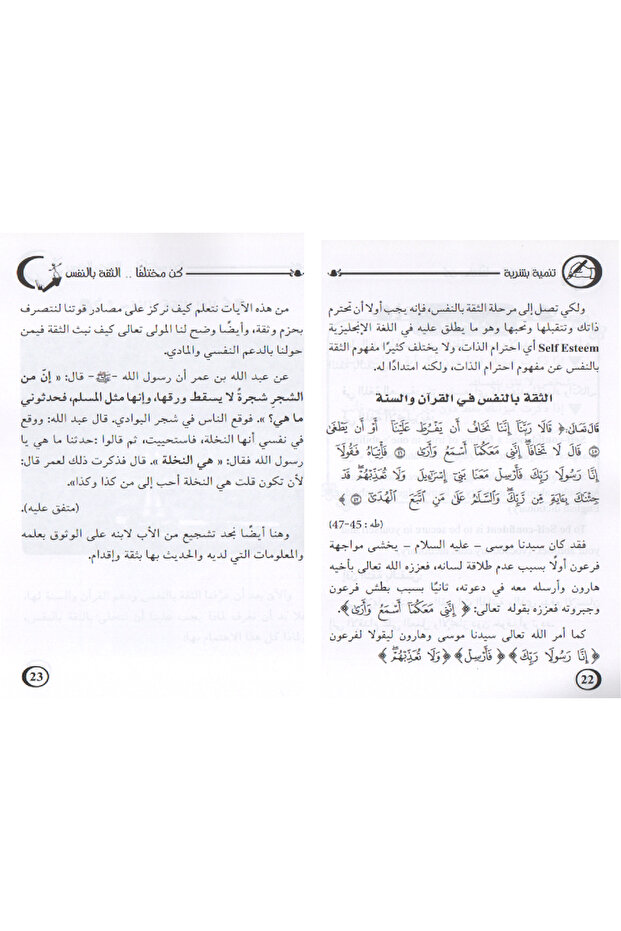 تنمية بشرية
ولكي تصل إلى مرحلة الثقة بالنفس، فإنه يجب أولا أن تحترم
ذاتك وتتقبلها وتحبها وهو ما يطلق عليه في اللغة الإنجليزية
Self Esteem أي احترام الذات، ولا يختلف كثيرًا مفهوم الثقة
بالنفس عن مفهوم احترام الذات، ولكنه امتدادًا له.
الثقة بالنفس في القرآن والسنة
قال تعالى: ﴿ قَالَا رَبَّنَا إِنَّنَا نَخَافُ أَن يَفْرُطَ عَلَيْنَا أَوْ أَن يَطْغَى
﴿٤٥﴾ قَالَ لَا تَخَافَا إِنَّنِي مَعَكُمَا أَسْمَعُ وَأَرَى ﴿٤٦﴾ فَأْتِيَاهُ فَقُولَا
إِنَّا رَسُولَا رَبِّكَ فَأَرْسِلْ مَعَنَا بَنِي إِسْرَائِيلَ وَلَا تُعَذِّبْهُمْ قَدْ
جِئْنَاكَ بِآيَةٍ مِّن رَّبِّكَ وَالسَّلَامُ عَلَى مَنِ اتَّبَعَ الْهُدَى ﴿٤٧﴾ ﴾
(طه : 45-47)
فقد كان سيدنا موسى – عليه السلام – يخشى مواجهة
فرعون أولًا بسبب عدم طلاقة لسانه، فعززه الله تعالى بأخيه
هارون وأرسله معه في دعوته، ثانيًا بسبب بطش فرعون
وجبروته فعززه بقوله تعالى: ﴿ إِنَّنِي مَعَكُمَا أَسْمَعُ وَأَرَى ﴾.
كما أمر الله تعالى سيدنا موسى وهارون ليقولا لفرعون
﴿ إِنَّا رَسُولَا رَبِّكَ ﴾ ﴿ فَأَرْسِلْ ﴾ ﴿ وَلَا تُعَذِّبْهُمْ ﴾
22
كن مختلفًا .. الثقة بالنفس
من هذه الآيات نتعلم كيف نركز على مصادر قوتنا لنتصرف
بحزم وثقة، وأيضًا وضح لنا المولى تعالى كيف نبث الثقة فيمن
حولنا بالدعم النفسي والمادي.
عن عبد الله بن عمر أن رسول الله -ﷺ- قال: « إنّ من
الشجرِ شجرةً لا يسقط ورقها، وإنها مثل المسلم، فحدثوني
ما هي؟ ». فوقع الناس في شجر البوادي. قال عبد الله: ووقع
في نفسي أنها النخلة، فاستحييت، ثم قالوا :حدثنا ما هي يا
رسول الله فقال: « هي النخلة ». قال فذكرت ذلك لعمر قال:
لأن تكون قلت هي النخلة أحب إلى من كذا وكذا».
(متفق عليه).
وهنا أيضًا نجد تشجيع من الأب لابنه على الوثوق بعلمه
والمعلومات التي لديه والحديث بها بثقة وإقدام.
23